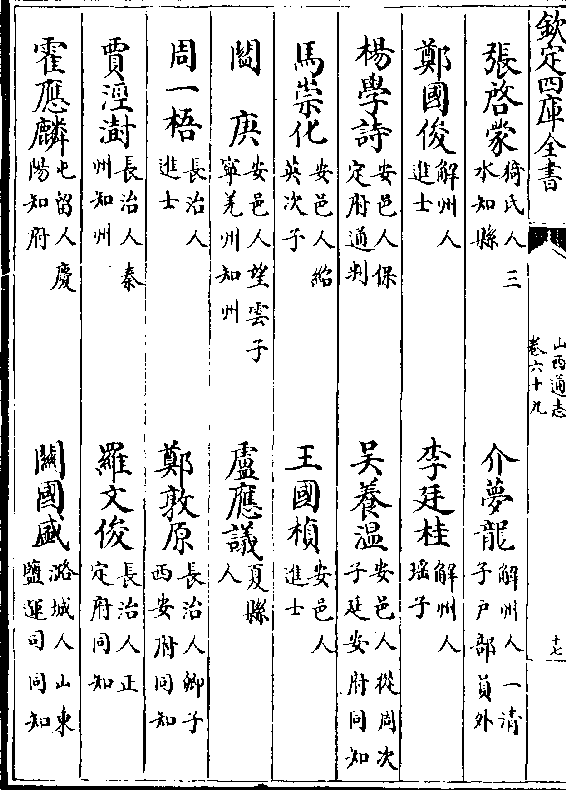 欽定四庫全書
山西通志
卷六十九
十七
張啓蒙 猗氏人三水知縣
介夢龍 解州人一清子戶部員外
鄭國俊 解州人進士
李廷桂 解州人瑤子
楊學詩 安邑人保定府通判
吴養温 安邑人從周次子延安府同知
馬崇化 安邑人紹英次子
王國楨 安邑人進士
閻庚 安邑人望雲子寧羌州知州
盧應議 夏縣人
周一梧 長治人進士
鄭敦原 長治人卿子西安府同知
賈涇澍 長治人秦州知州
羅文俊 長治人正定府同知
霍應麟 屯留人慶陽知府
關國盛 潞城人山東鹽運司同知